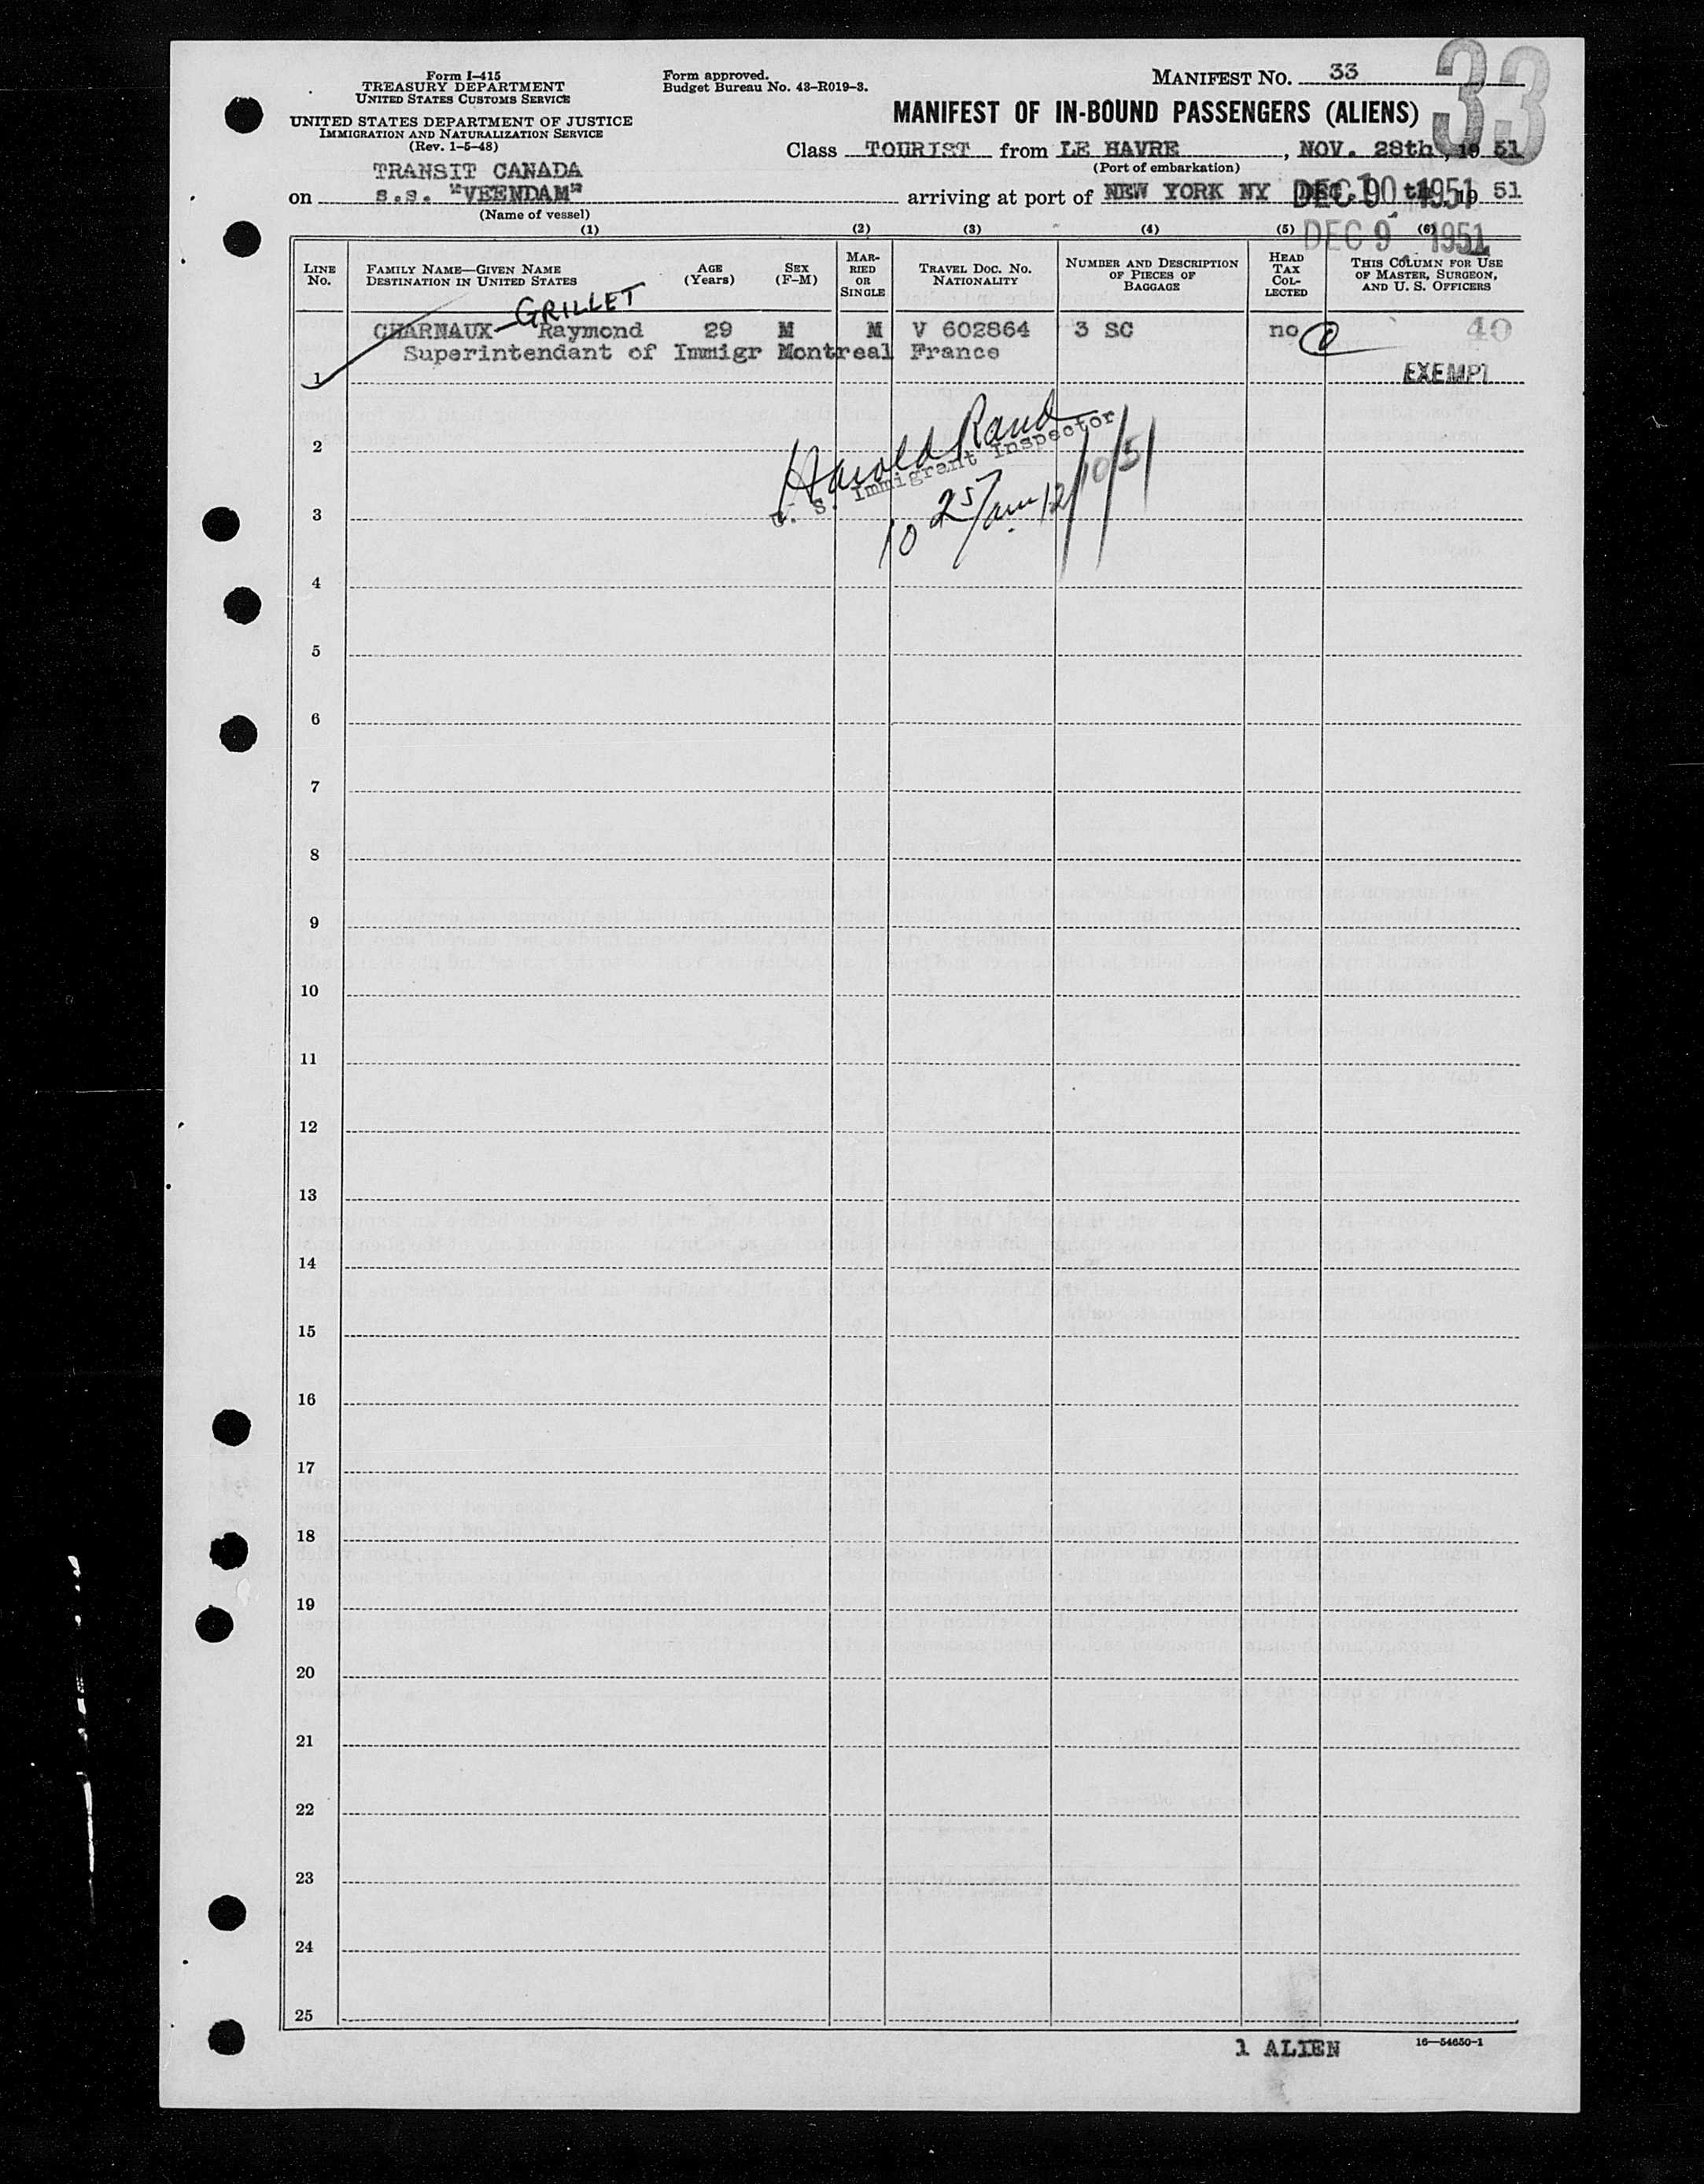 Form I-415
TREASURY DEPARTMENT
UNITED STATES CUSTOMS SERVICE
UNITED STATES DEPARTMENT OF JUSTICE
IMMIGRATION AND NATURALIZATION SERVICE
(Rev. 1-5-48)
Form approved.
Budget Bureau No. 43-R019-3.
MANIFEST NO. 33
33
MANIFEST OF IN-BOUND PASSENGERS (ALIENS)
Class TOURIST from LE HAVRE, NOV. 28th, 19 51
(Port of embarkation)
TRANSIT CANADA
on s.s. "VEENDAM" arriving at port of NEW YORK NY DEC 10 1951, 19 51
(Name of vessel)
DEC 9 1951
(1) (2) (3) (4) (5) (6)
LINE No.
FAMILY NAME—GIVEN NAME
DESTINATION IN UNITED STATES
AGE (Years)
SEX (F-M)
MARRIED OR SINGLE
TRAVEL DOC. No.
NATIONALITY
NUMBER AND DESCRIPTION OF PIECES OF BAGGAGE
HEAD TAX COLLECTED
THIS COLUMN FOR USE OF MASTER, SURGEON, AND U. S. OFFICERS
GRILLET
CHARNAUX- Raymond 29 M M V 602864 3 SC no 40
Superintendant of Immigr Montreal France
1 EXEMPT
Harold Rand
U. S. Immigrant Inspector
10 25/am 12/10/51
2
3
4
5
6
7
8
9
10
11
12
13
14
15
16
17
18
19
20
21
22
23
24
25
1 ALIEN
16—54650-1